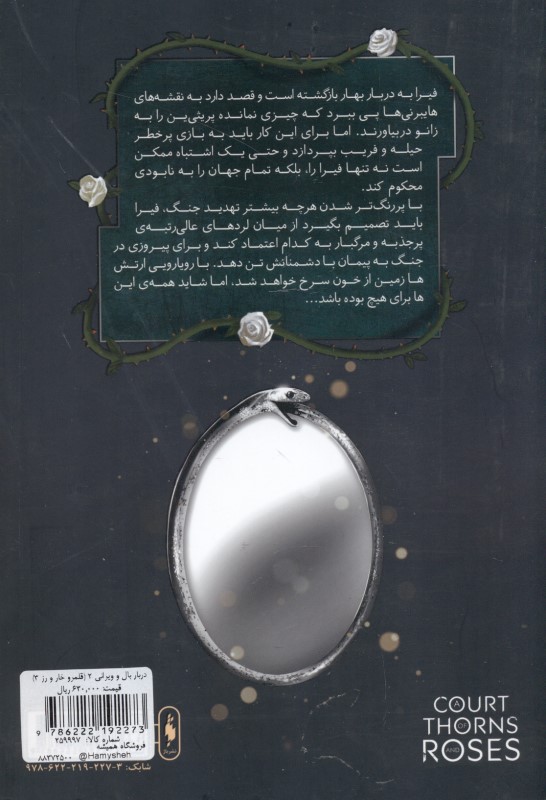 فیرا به دربار بهار بازگشته است و قصد دارد به نقشه‌های
هایبرنی‌ها پی ببرد که چیزی نمانده پریثی‌ین را به
زانو دربیاورند. اما برای این کار باید به بازی پرخطر
حیله و فریب بپردازد و حتی یک اشتباه ممکن
است نه تنها فیرا را، بلکه تمام جهان را به نابودی
محکوم کند.
با پررنگ‌تر شدن هرچه بیشتر تهدید جنگ، فیرا
باید تصمیم بگیرد از میان لردهای عالی‌رتبه‌ی
پرجذبه و مرگبار به کدام اعتماد کند و برای پیروزی در
جنگ به پیمان با دشمنانش تن دهد. با رویارویی ارتش
ها زمین از خون سرخ خواهد شد. اما شاید همه‌ی این
ها برای هیچ بوده باشد...
دربار بال و ویرانی ۲ (قلمرو خار و رز ۳)
قیمت: ۶۳۰,۰۰۰ ریال
9 786222 192273
شماره کالا: ۲۵۹۹۹۷
فروشگاه همیشه
۸۸۳۷۲۵۰۰ @Hamysheh
شابک: ۳-۲۲۷-۲۱۹-۶۲۲-۹۷۸
A
COURT
OF
THORNS
AND
ROSES